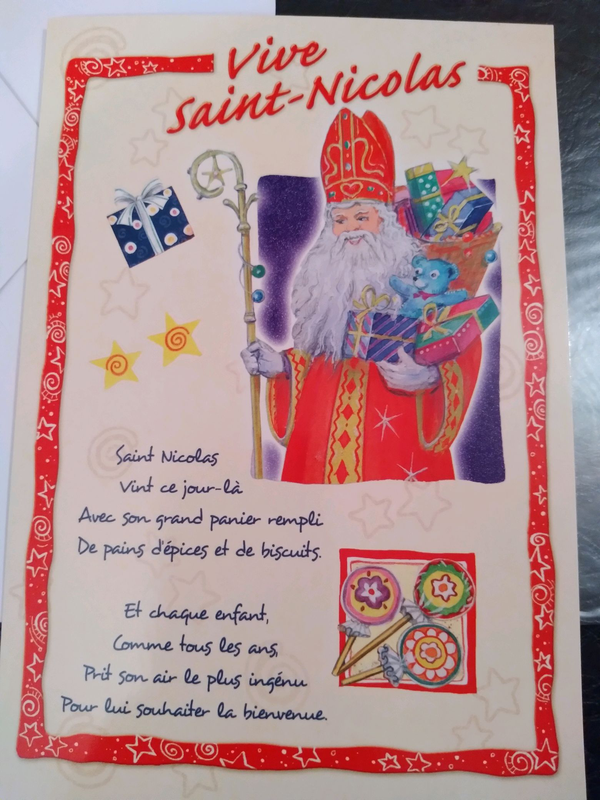 Vive
Saint-Nicolas
Saint Nicolas
Vint ce jour-là
Avec son grand panier rempli
De pains d'épices et de biscuits.
Et chaque enfant,
Comme tous les ans,
Prit son air le plus ingénu
Pour lui souhaiter la bienvenue.